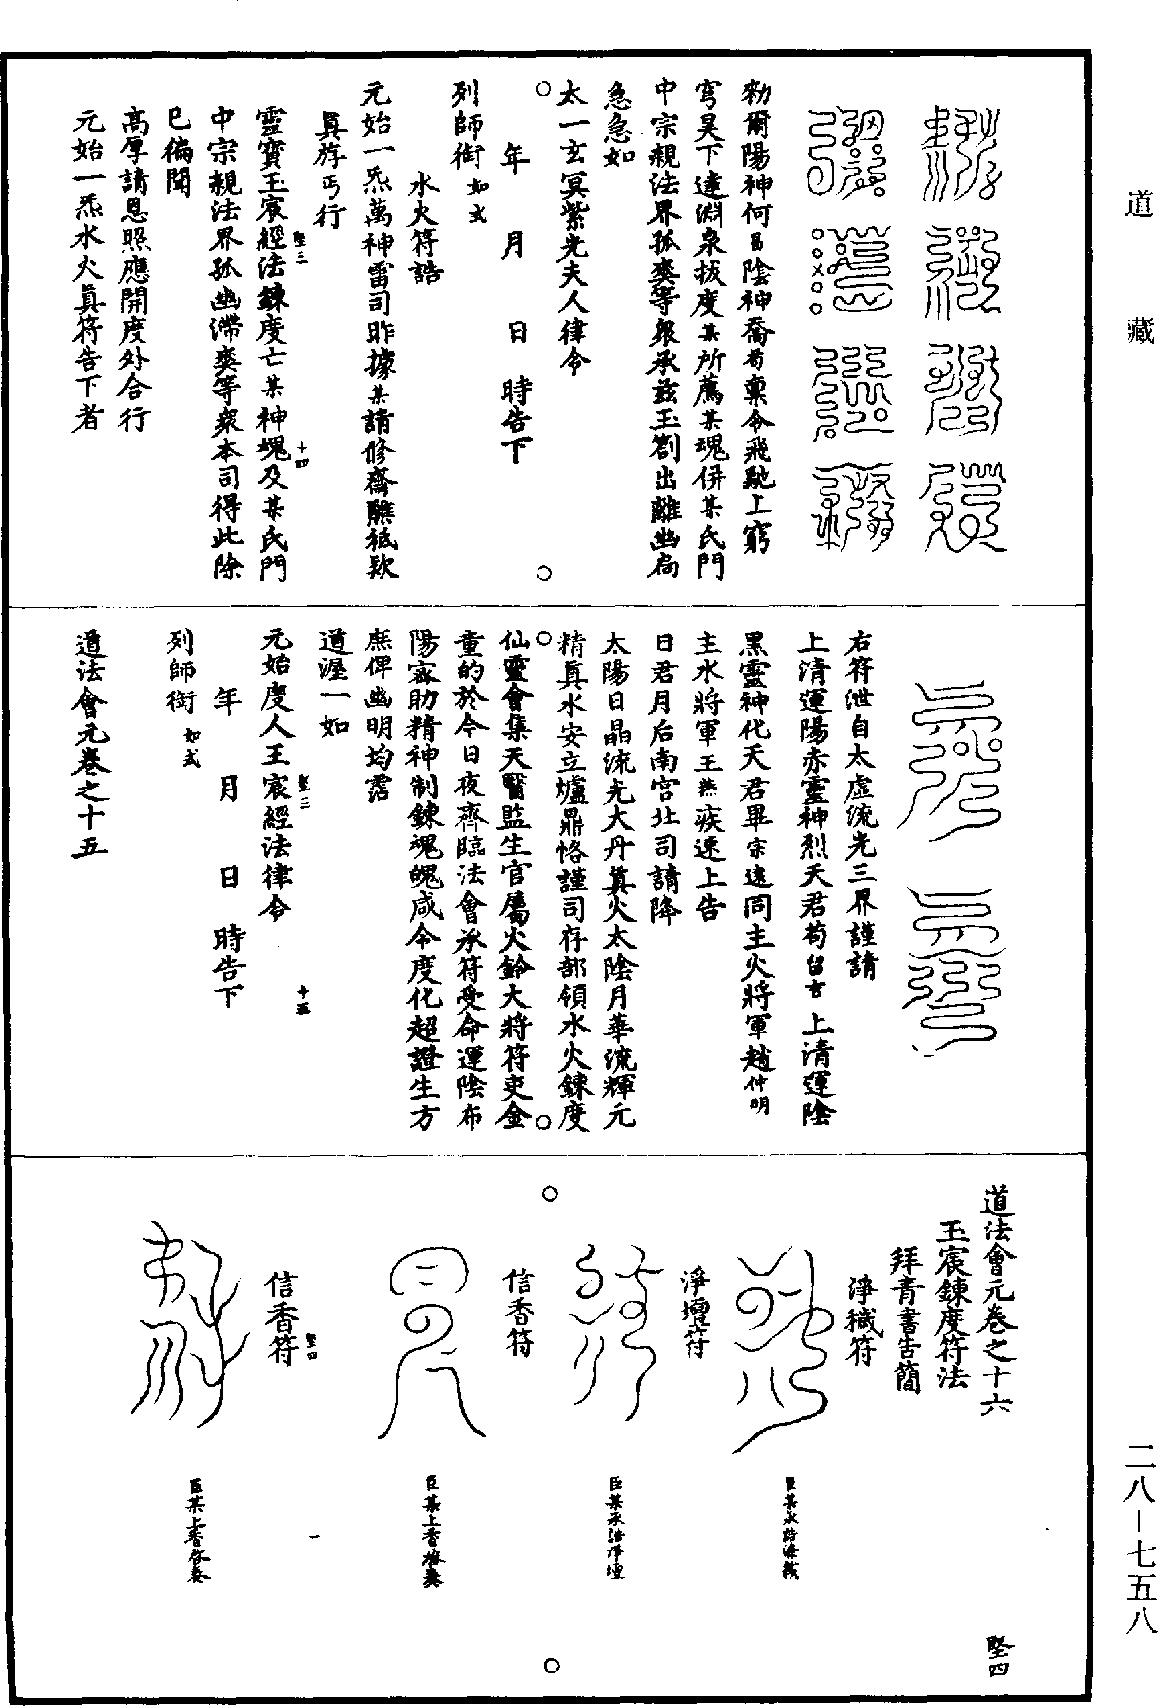 道藏
勑爾陽神何昌陰神喬荀稟令飛馳上窮
穹昊下達淵泉拔度某所薦某魂併某氏門
中宗親法界孤爽等衆承茲玉劄出離幽扃
急急如
太一玄冥紫光夫人律令
年 月 日 時告下
列師銜如式
水火符誥
元始一炁萬神雷司昨據某請修齋醮祗欵
眞斿丐行
靈寶玉宸經法鍊度亡某神魂及某氏門
堅三 十四
中宗親法界孤幽滯爽等衆本司得此除
巳徧聞
高厚請恩照應開度外合行
元始一炁水火眞符告下者
右符泄自太虛流光三界謹請
上清運陽赤靈神烈天君荀留吉上清運陰
黑靈神化天君畢宗遠同主火將軍趙仲明
主水將軍王燕疾速上告
日君月后南宫北司請降
太陽日晶流光大丹眞火太陰月華流輝元
精眞水安立爐鼎恪謹司存部領水火鍊度
仙靈會集天醫監生官屬火鈴大將符吏金
童的於今日夜齊臨法會承符受命運陰布
陽宻助精神制鍊魂魄咸令度化超證生方
庶俾幽明均霑
道渥一如
元始度人玉宸經法律令
堅三 十五
年 月 日 時告下
列師銜如式
道法會元卷之十五
道法會元卷之十六
堅四
玉宸鍊度符法
拜青書告簡
淨穢符
淨壇符
臣某承誥淨壇
信香符
臣某上香啓奏
堅四 一
信香符
臣某上香啓奏
二八—七五八